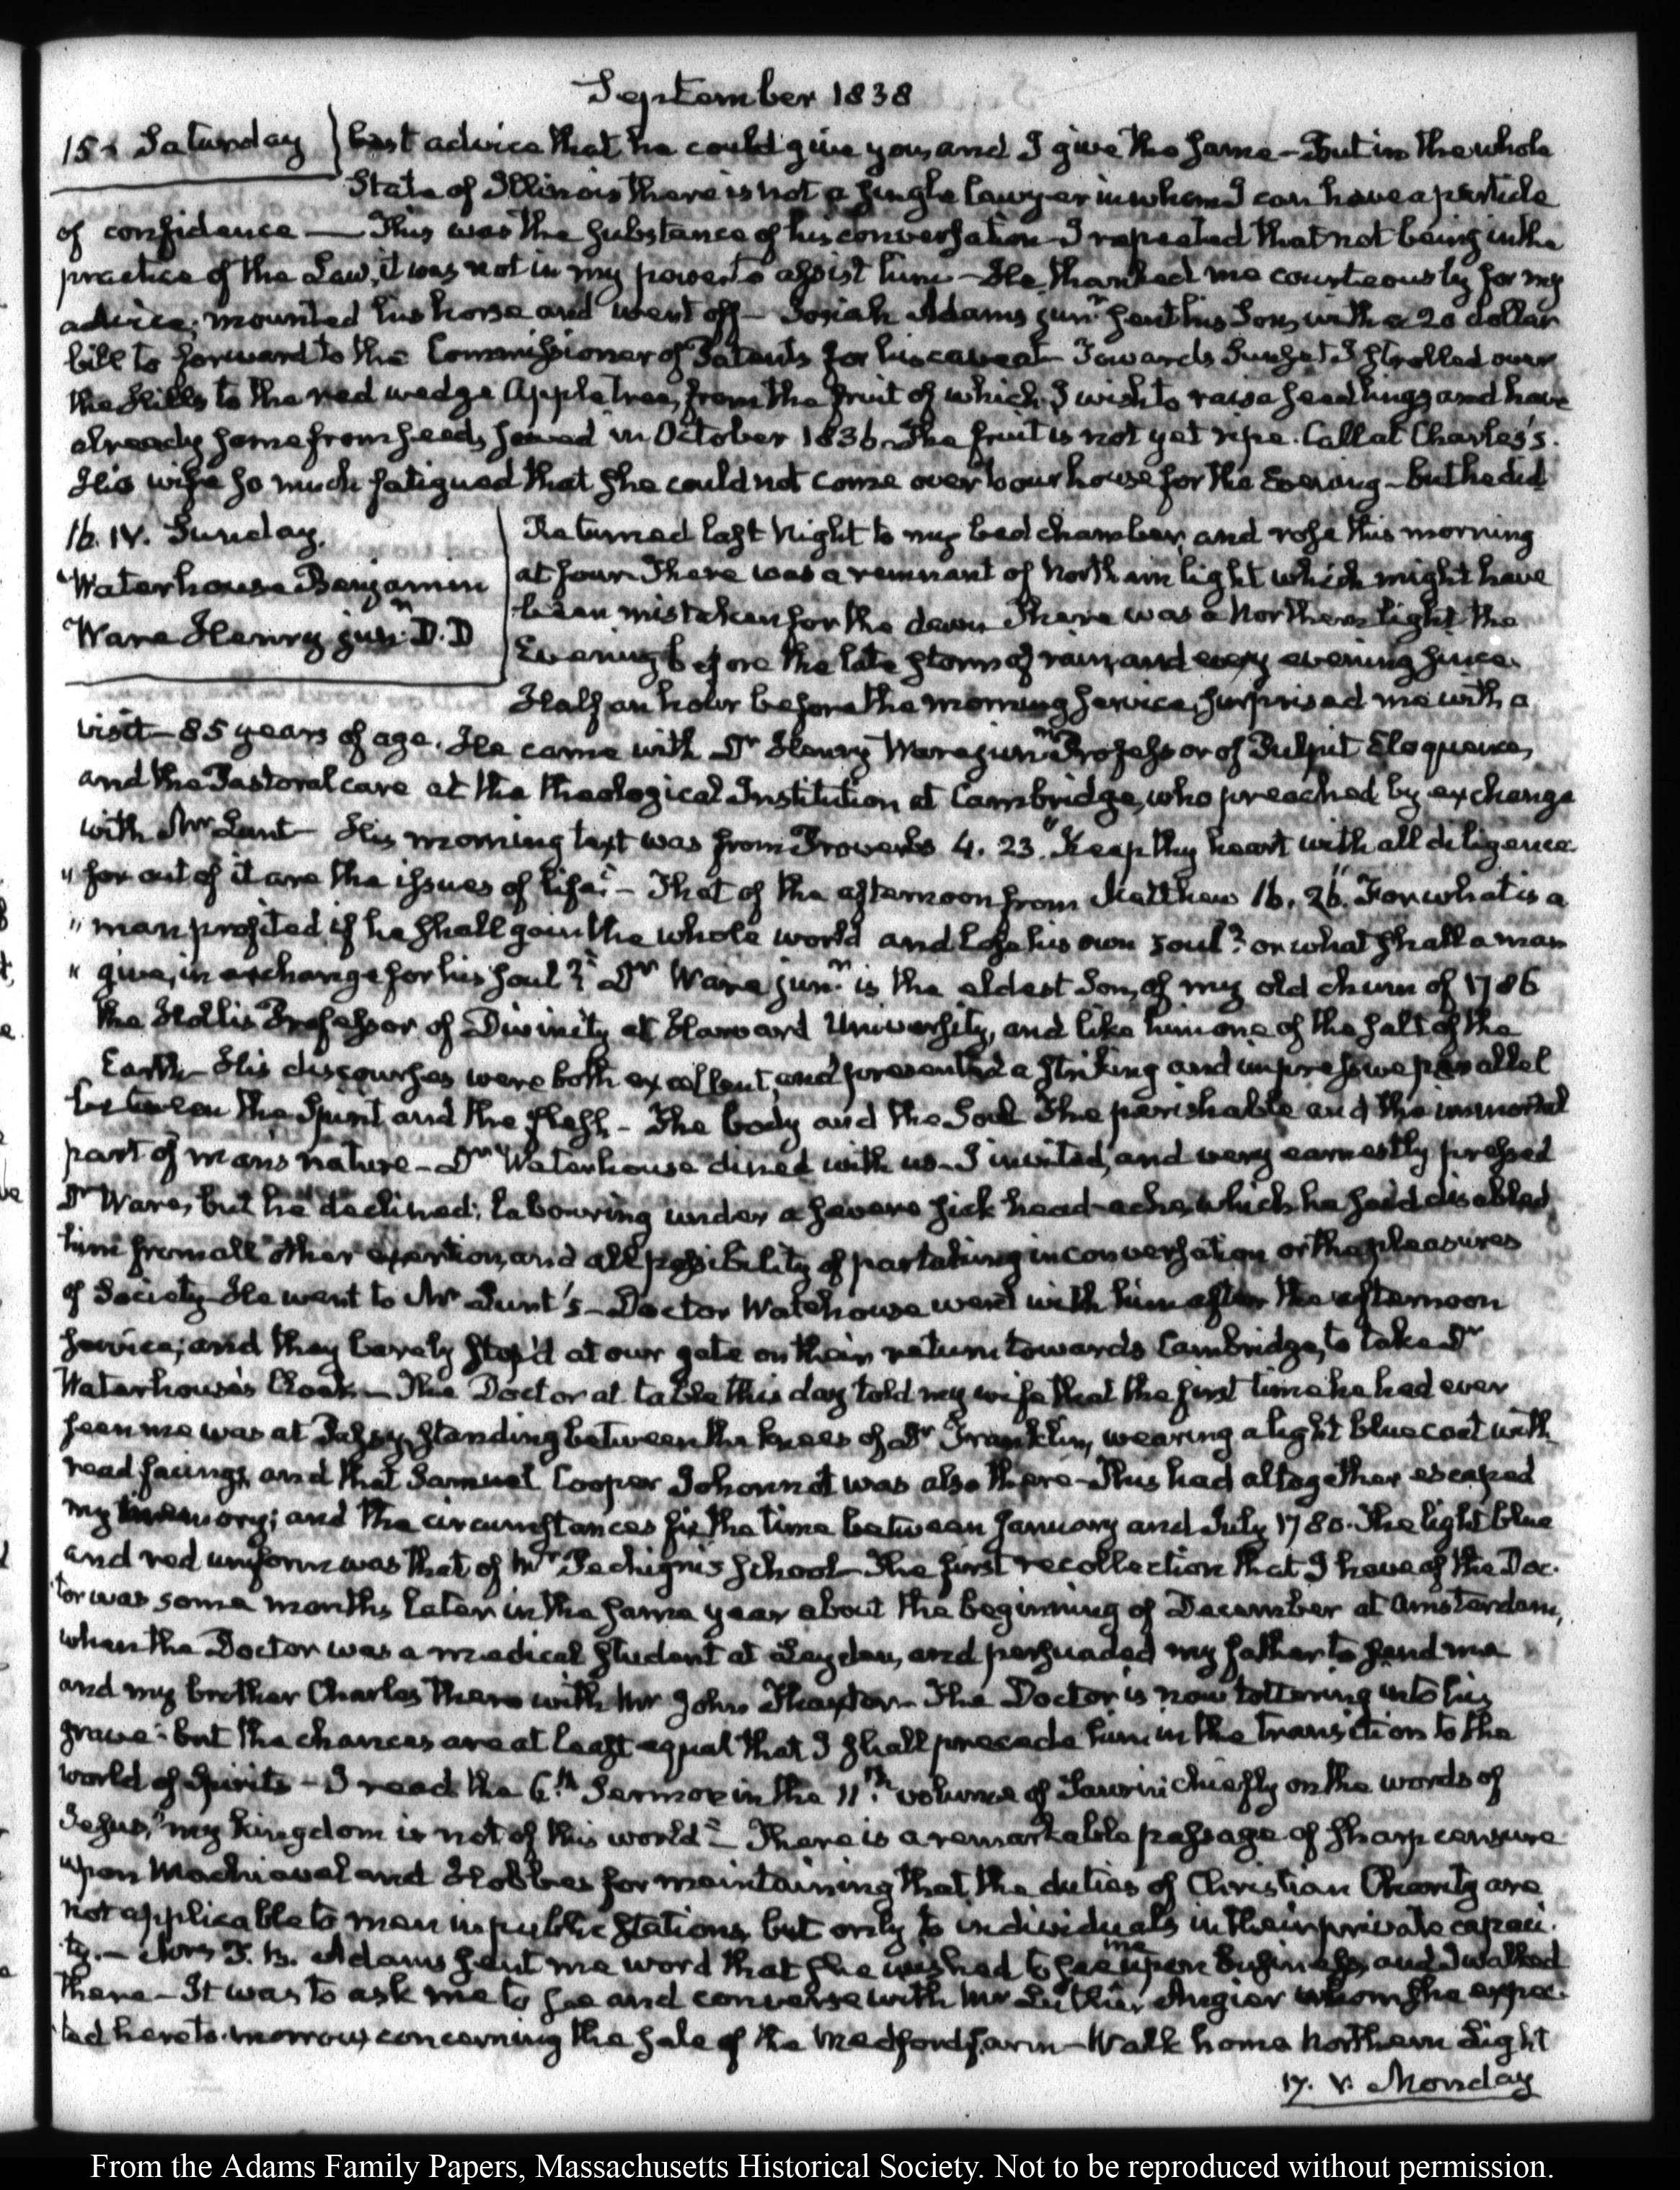 September 1838
15. Saturday
best advice that he could give you, and I give the same – But in the whole
State of Illinois there is not a single lawyer in whom I can have a particle
of confidence — This was the substance of his conversation – I repeated that not being in the
practice of the Law, it was not in my power to assist him – He thanked me courteously for my
advice; mounted his horse and went off – Josiah Adams junr. sent his Son, with a 20 dollar
bill to forward to the Commissioner of Patents for his caveat – Towards Sunset I strolled over
the Hills to the red wedge Apple tree, from the fruit of which I wish to raise seedlings and have
already some from seeds sowed in October 1836. The fruit is not yet ripe. Call at Charles's.
His wife so much fatigued that she could not come over to our house for the Evening – but he did
16. IV. Sunday.
Waterhouse Benjamin
Ware Henry junr. D.D
Returned last Night to my bed chamber, and rose this morning
at four. There was a remnant of northern light which might have
been mistaken for the dawn. There was a Northern light the
Evening before the late storm of rain, and every evening since.
Half an hour before the morning service, surprised me with a
visit – 85 years of age. He came with Dr Henry Ware junr. Professor of Pulpit Eloquence,
and the Pastoral care at the theological Institution at Cambridge, who preached by exchange
with Mr Lunt – His morning text was from Proverbs 4. 23. "Keep thy heart with all diligence
" for out of it are the issues of life." – That of the afternoon from Matthew 16. 26. "For what is a
" man profited, if he shall gain the whole world and lose his own soul? or what shall a man
" give, in exchange for his soul?" Dr Ware junr. is the eldest Son, of my old chum of 1786
the Hollis Professor of Divinity at Harvard University, and like him one of the salt of the
Earth – His discourses were both excellent, and presented a striking and impressive parallel
between the Spirit and the flesh – The body and the Soul The perishable and the immortal
part of man's nature – Dr Waterhouse dined with us – I invited, and very earnestly pressed
Dr Ware, but he declined; labouring under a severe sick head-ache, which he said disabled
him from all other exertion, and all possibility of partaking in conversation or the pleasures
of Society – He went to Mr Lunt's – Doctor Watehouse went with him after the afternoon
service; and they barely stop'd at our gate on their return towards Cambridge, to take Dr
Waterhouse's Cloak – The Doctor at table this day told my wife that the first time he had ever
seen me was at Passy, standing between the knees of Dr Franklin, wearing a light blue coat with
read facings, and that Samuel Cooper Johonnot was also there – This had altogether escaped
my memory; and the circumstances fix the time between January and July 1780. The light blue
and red uniform was that of Mr Pechigni's school – The first recollection that I have of the Doc-
tor was some months later in the same year about the beginning of December at Amsterdam,
when the Doctor was a medical student at Leyden, and persuaded my father to send me
and my brother Charles there with Mr John Thaxter – The Doctor is now tottering into his
grave: but the chances are at least equal that I shall precede him in the transition to the
world of Spirits – I read the 6th. Sermon in the 11th. volume of Saurin chiefly on the words of
Jesus, "my kingdom is not of this world" – There is a remarkable passage of sharp censure
upon Machiavel and Hobbes for maintaining that the duties of Christian Charity are
not applicable to men in public stations, but only to individuals in their private capaci-
ty. – Mrs T. B. Adams sent me word that she wished to see me upon business, and I walked
there – It was to ask me to see and converse with Mr Luther Angier whom she expec-
ted here to-morrow, concerning the sale of the Medford farm – Walk home Northern Light
17. V. Monday
From the Adams Family Papers, Massachusetts Historical Society. Not to be reproduced without permission.